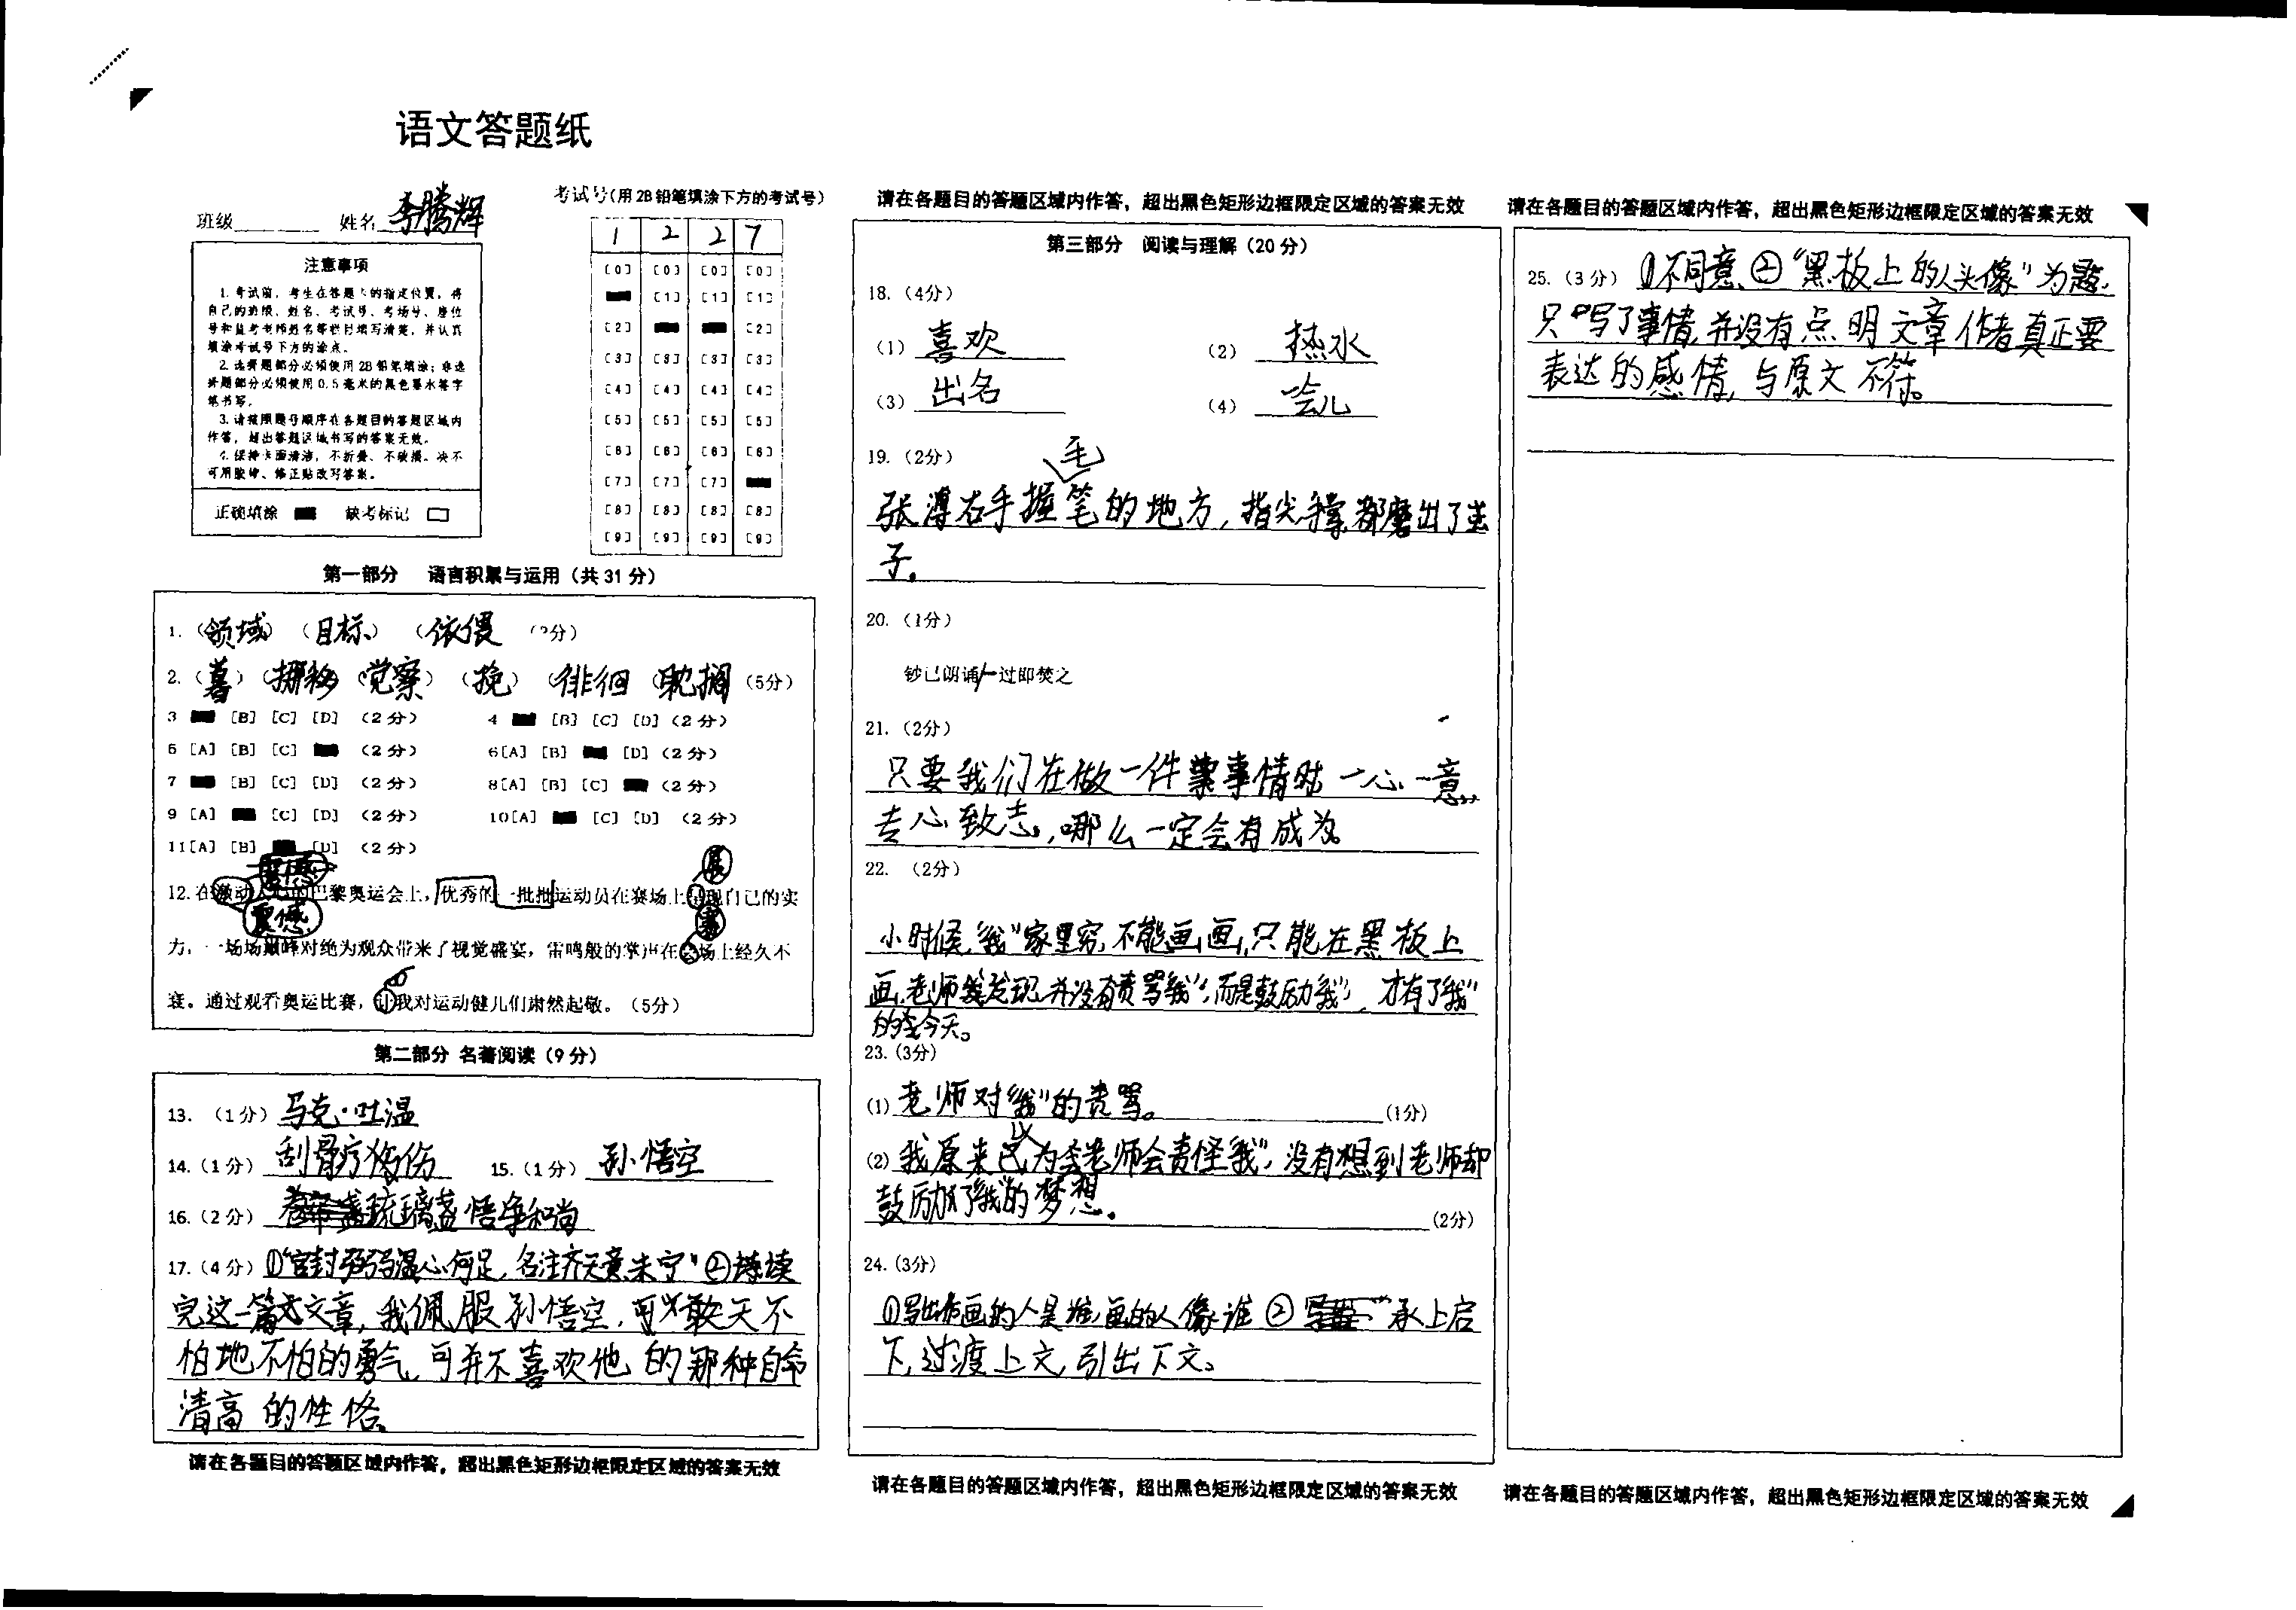 语文答题纸
班级 姓名 李腾辉
考试号(用2B铅笔填涂下方的考试号)
1 2 2 7
[0] [0] [0] [0]
[1] [1] [1]
[2] [2]
[3] [3] [3] [3]
[4] [4] [4] [4]
[5] [5] [5] [5]
[6] [6] [6] [6]
[7] [7] [7]
[8] [8] [8] [8]
[9] [9] [9] [9]
注意事项
1.考试前,考生在答题卡的指定位置,将
自己的班级、姓名、考试号、考场号、座位
号和监考老师姓名等栏目填写清楚,并认真
填涂考试号下方的涂点。
2.选择题部分必须使用2B铅笔填涂;非选
择题部分必须使用0.5毫米的黑色墨水签字
笔书写。
3.请按照题号顺序在各题目的答题区域内
作答,超出答题区域书写的答案无效。
4.保持卡面清洁,不折叠、不破损。决不
可用胶带、修正贴改写答案。
正确填涂 缺考标记
第一部分 语言积累与运用(共31分)
1.(领域)(目标)(依偎
2.(暮)(挪移)(觉察)(挽)(徘徊(耽搁(5分)
3 [B] [C] [D] (2分) 4 [B] [C] [D] (2分)
5 [A] [B] [C] (2分) 6[A] [B] [D] (2分)
7 [B] [C] [D] (2分) 8[A] [B] [C] (2分)
9 [A] [C] [D] (2分) 10[A] [C] [D] (2分)
11[A] [B] [D] (2分)
震撼 展
12.在激动人心的巴黎奥运会上,优秀的一批批运动员在赛场上呈现自己的实
震撼 赛
力,一场场巅峰对绝为观众带来了视觉盛宴,雷鸣般的掌声在会场上经久不
衰。通过观看奥运比赛,让我对运动健儿们肃然起敬。(5分)
第二部分 名著阅读(9分)
13.(1分)马克·吐温
14.(1分)刮骨疗伤 15.(1分)孙悟空
16.(2分)琉璃盏 悟净和尚
17.(4分)①“官封弼马温心何足,名注齐天意未宁”②读
完这一篇文章,我佩服孙悟空,敢天不
怕地不怕的勇气,可并不喜欢他的那种自命
清高的性格。
请在各题目的答题区域内作答,超出黑色矩形边框限定区域的答案无效
请在各题目的答题区域内作答,超出黑色矩形边框限定区域的答案无效
第三部分 阅读与理解(20分)
18.(4分)
(1)喜欢 (2)热水
(3)出名 (4)一会儿
19.(2分)
毛
张溥右手握笔的地方,指尖掌都磨出了茧
子。
20.(1分)
钞已朗诵/一过即焚之
21.(2分)
只要我们在做一件事情时一心一意,
专心致志,哪么一定会有成为。
22.(2分)
小时候,“我”家里穷,不能画画,只能在黑板上
画,老师发现并没有责骂“我”,而是鼓励“我”,才有了“我”
的今天。
23.(3分)
(1)老师对“我”的责骂。(1分)
(2)我原来以为李老师会责怪“我”,没有想到老师却
鼓励了“我”的梦想。(2分)
24.(3分)
①写出作画的人是谁,画的人像谁②承上启
下,过渡上文,引出下文。
请在各题目的答题区域内作答,超出黑色矩形边框限定区域的答案无效
请在各题目的答题区域内作答,超出黑色矩形边框限定区域的答案无效
25.(3分)①不同意,②“黑板上的人头像”为题,
只写了事情,并没有点明文章作者真正要
表达的感情,与原文不符。
请在各题目的答题区域内作答,超出黑色矩形边框限定区域的答案无效